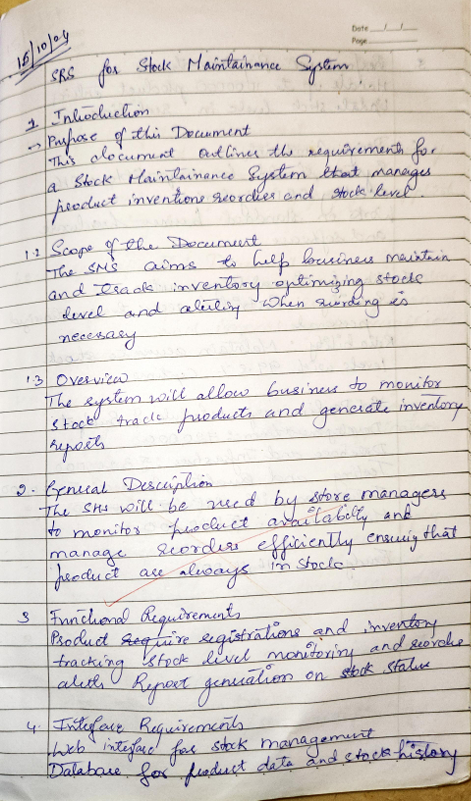 Date / /
Page
15/10/24
SRS for Stock Maintainance System
1. Introduction
→ Purpose of this Document
This document outlines the requirements for
a Stock Maintainance System that manages
product inventions reorders and stock level
1.2 Scope of the Document
The SMS aims to help business maintain
and track inventory optimizing stock
level and when is
necessary
1.3 Overview
The system will allow business to monitor
stock track products and generate inventory
reports
2. General Description
The SMS will be used by store managers
to monitor product availability and
manage reorders efficiently ensuring that
product are always in stock.
3 Functional Requirements
Product require registrations and inventory
tracking stock level monitoring and
Report generation on stock status
4. Interface Requirements
Web interface for stock management
Database for product data and stock history